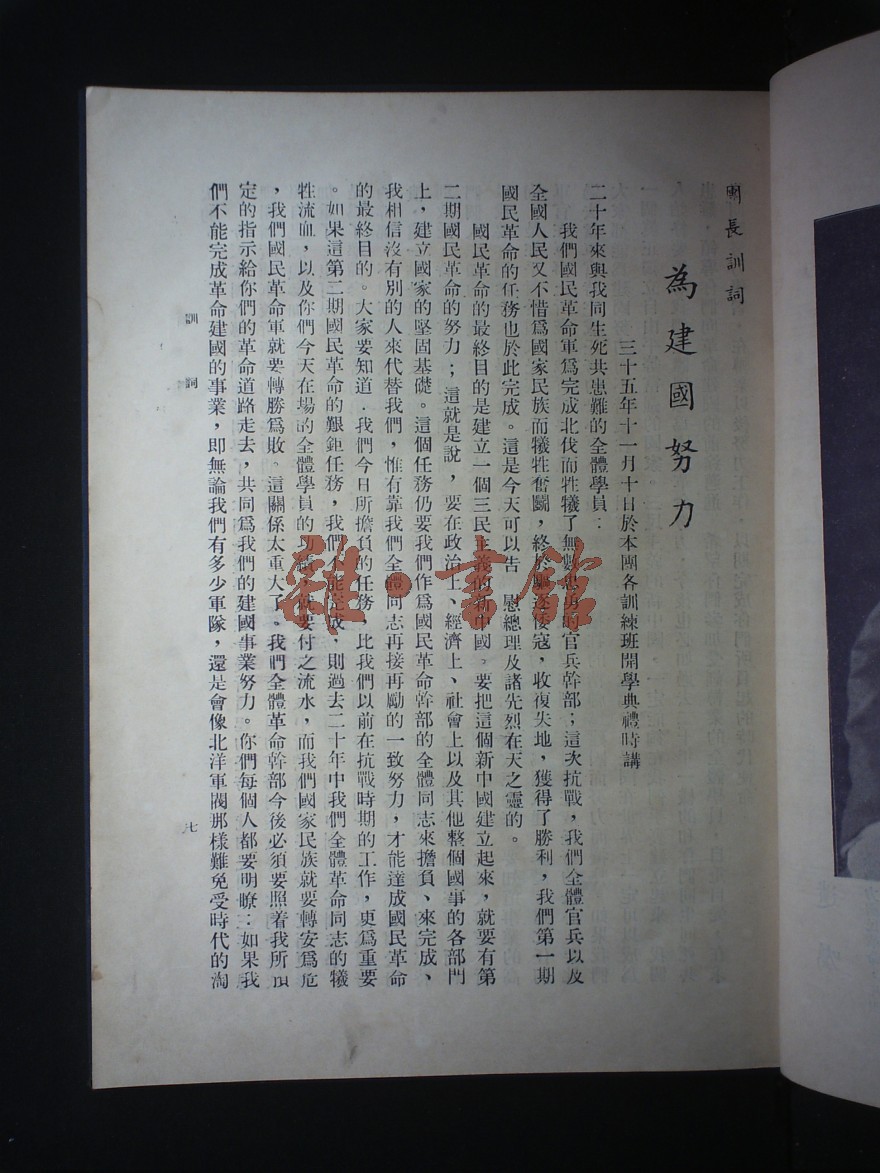 團長訓詞
為建國努力
三十五年十一月十日於本團各訓練班開學典禮時講
二十年來與我同生死共患難的全體學員：
我們國民革命軍爲完成北伐而牲犧了無數忠勇的官兵幹部；這次抗戰，我們全體官兵以及
全國人民又不惜爲國家民族而犧牲奮鬭，終於驅逐倭寇，收復失地，獲得了勝利，我們第一期
國民革命的任務也於此完成。這是今天可以告　慰總理及諸先烈在天之靈的。
國民革命的最終目的是建立一個三民主義的新中國。要把這個新中國建立起來，就要有第
二期國民革命的努力；這就是說，要在政治上、經濟上、社會上以及其他整個國事的各部門
上，建立國家的堅固基礎。這個任務仍要我們作爲國民革命幹部的全體同志來擔負、來完成、
我相信沒有別的人來代替我們，惟有靠我們全體同志再接再勵的一致努力，才能達成國民革命
的最終目的。大家要知道．我們今日所擔負的任務，比我們以前在抗戰時期的工作，更爲重要
。如果這第二期國民革命的艱鉅任務，我們不能完成，則過去二十年中我們全體革命同志的犧
牲流血，以及你們今天在場的全體學員的功績，就要付之流水，而我們國家民族就要轉安爲危
，我們國民革命軍就要轉勝爲敗。這關係太重大了。我們全體革命幹部今後必須要照着我所預
定的指示給你們的革命道路走去，共同爲我們的建國事業努力。你們每個人都要明瞭：如果我
們不能完成革命建國的事業，即無論我們有多少軍隊，還是會像北洋軍閥那樣難免受時代的淘
訓詞
七
雜·書館